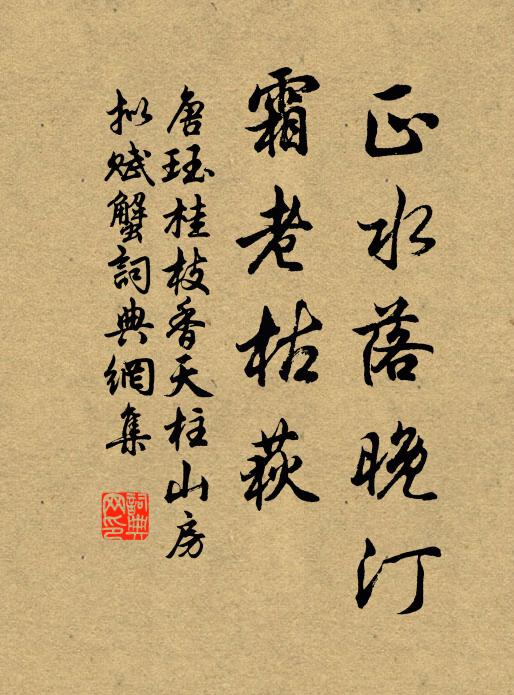 正水落晚汀
霜老枯荻
唐珏桂枝香天柱山房
拟赋蟹詞典網集
詞典
网印